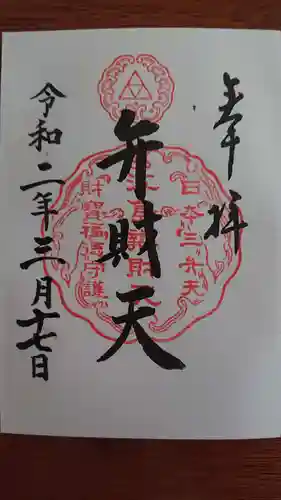 奉拝
日本三弁天
弁財天
財寶福徳守護
令和二年三月十七日